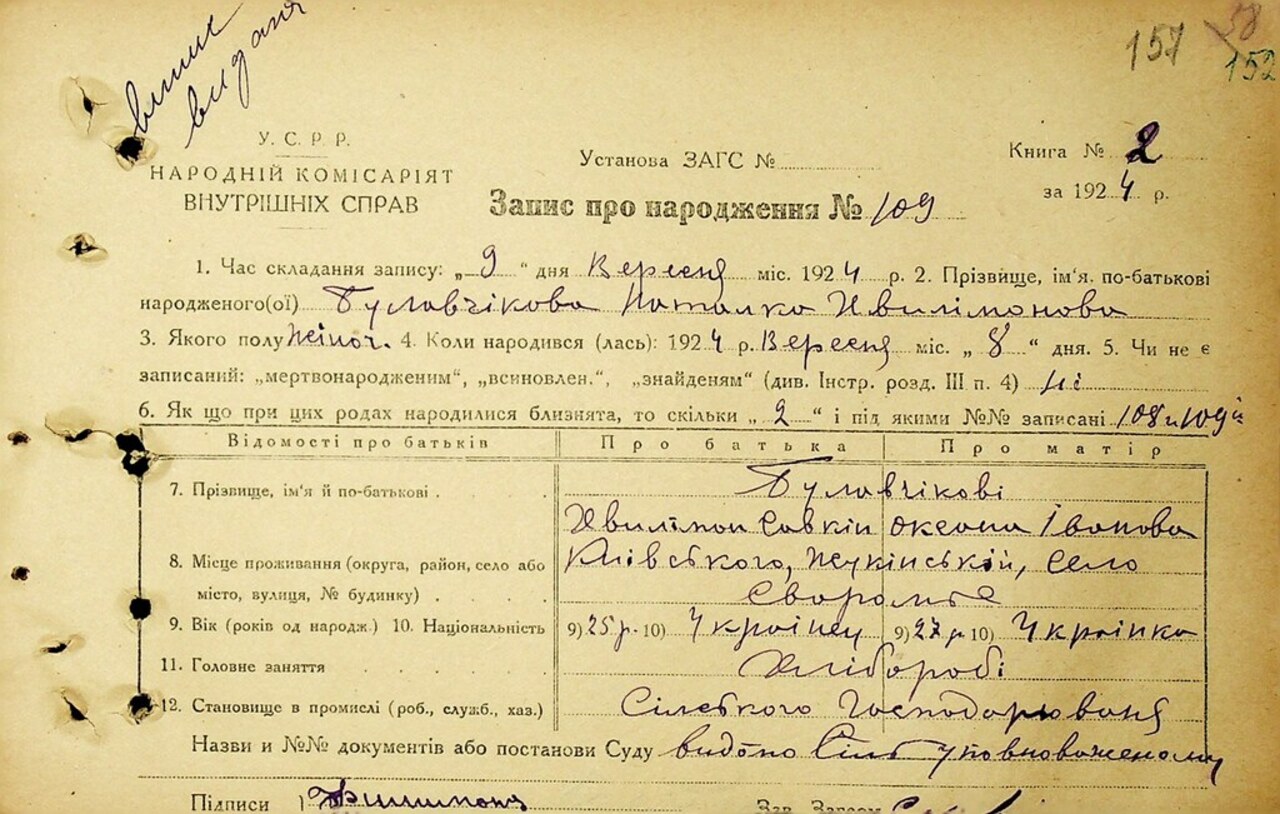 випис
видано
157 58
152
У. С. Р. Р.
НАРОДНІЙ КОМІСАРІЯТ
ВНУТРІШНІХ СПРАВ
Установа ЗАГС №
Книга № 2
за 1924 р.
Запис про народження № 109
1. Час складання запису: „9“ дня Вересня міс. 1924 р. 2. Прізвище, ім'я. по-батькові
народженого(ої) Булавчікова Наталка Хвилімонова
3. Якого полу жіноч. 4. Коли народився (лась): 1924 р. Вересня міс. „8“ дня. 5. Чи не є
записаний: „мертвонародженим“, „всиновлен.“, „знайденям“ (див. Інстр. розд. III п. 4) ні
6. Як що при цих родах народилися близнята, то скільки „2“ і під якими №№ записані 108 и 109й
Відомості про батьків Про батька Про матір
7. Прізвище, ім'я й по-батькові . . . . Булавчікові
Хвилімон Савкін Оксана Іванова
8. Місце проживання (округа, район, село або Київського, Жукінській, село
місто, вулиця, № будинку) . . . . Сваромьє
9. Вік (років од народж.) 10. Національність 9) 25 р. 10) Українец 9) 27 р. 10) Українка
11. Головне заняття . . . . Хлібороби
12. Становище в промислі (роб., служб., хаз.) Сільського Господорюваня
Назви и №№ документів або постанови Суду видано Сіль уповноваженому
Підписи ) Филимон Зав. Загсом